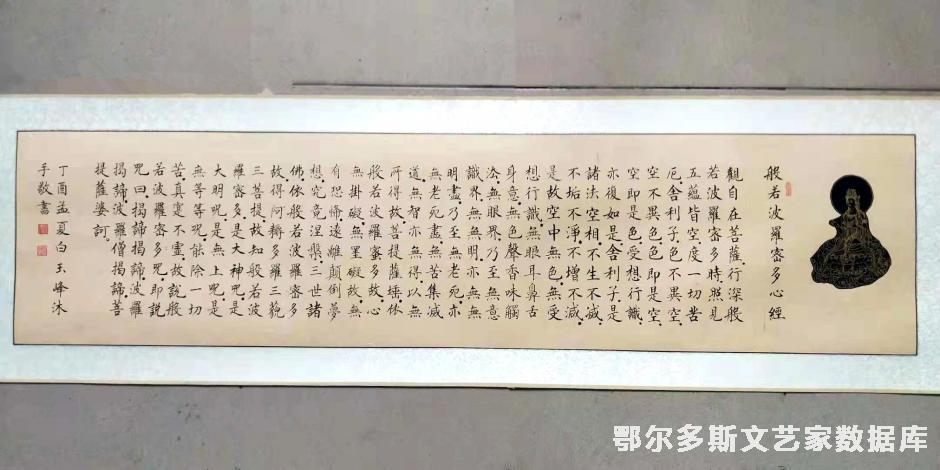 般若波羅密多心經
觀自在菩薩行深般
若波羅密多時照見
五蘊皆空度一切苦
厄舍利子色不異空
空不異色色即是空
空即是色受想行識
亦復如是舍利子是
諸法空相不生不滅
不垢不淨不增不減
是故空中無色無受
想行識無眼耳鼻舌
身意無色聲香味觸
法無眼界乃至無意
識界無無明亦無無
明盡乃至無老死亦
無老死盡無苦集滅
道無智亦無得以無
所得故菩提薩埵依
般若波羅蜜多故心
無掛礙無罣礙故無
有恐怖遠離顛倒夢
想究竟涅槃三世諸
佛依般若波羅密多
故得阿耨多羅三藐
三菩提故知般若波
羅密多是大神咒是
大明咒是無上咒是
無等等咒能除一切
苦真實不虛故說般
若波羅密多咒即說
咒曰揭諦揭諦波羅
揭諦波羅僧揭諦菩
提薩婆訶
丁酉孟夏白玉峰沐
手敬書
鄂尔多斯文艺家数据库